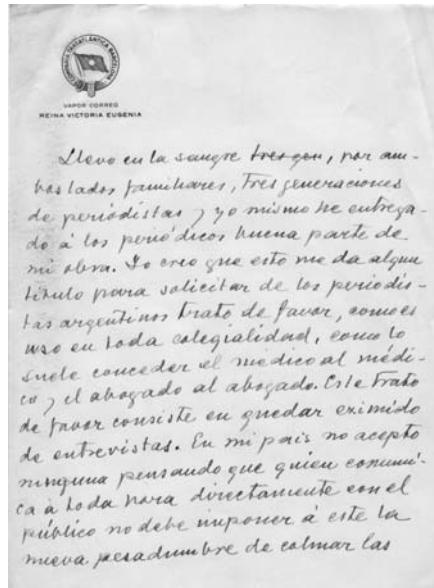 COMPAÑIA TRASATLÁNTICA BARCELONA
VAPOR CORREO
REINA VICTORIA EUGENIA
Llevo en la sangre tres gen, por am-
bos lados familiares, tres generaciones
de periodistas y yo mismo he entrega-
do á los periódicos buena parte de
mi obra. Yo creo que esto me da algun
titulo para solicitar de los periodis-
tas argentinos trato de favor, como es
uso en toda colegialidad, como lo
suele conceder el médico al médi-
co y el abogado al abogado. Este trato
de favor consiste en quedar eximido
de entrevistas. En mi pais no acepto
ninguna pensando que quien comuni-
ca á toda hora directamente con el
público no debe imponer á este la
nueva pesadumbre de colmar las